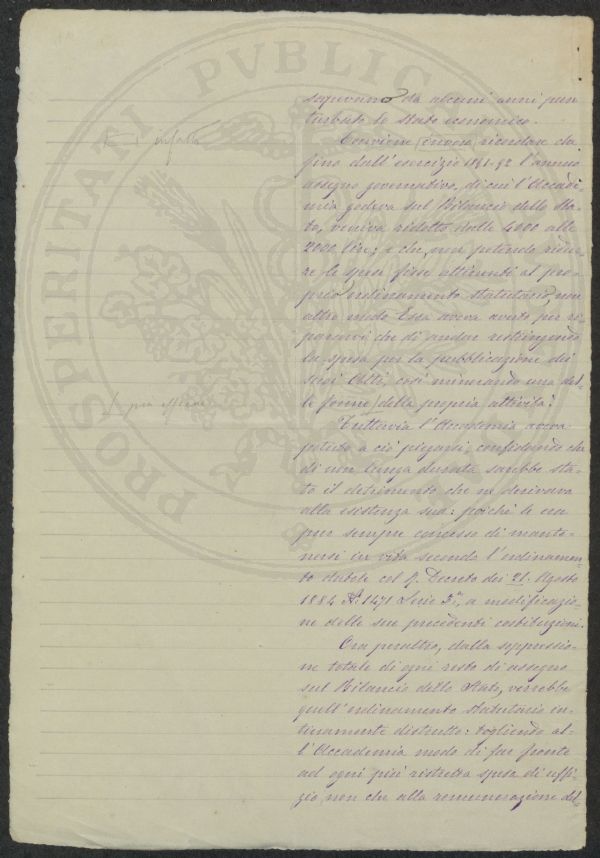 PROSPERITATI PVBLICAE
sapevano da alcuni anni per
turbato lo stato economico.
Conviene invero ricordare che
fino dall'esercizio 1891-92 l'annuo
assegno governativo, di cui l'Accade
mia godeva sul Bilancio dello Sta-
to, veniva ridotto dalle 4000 alle
2000 lire; e che, non potendo ridur-
re le spese fisse attinenti al pro-
prio ordinamento statutario, non
altro modo Essa aveva avuto per ri-
pararvi che di andar restringendo
la spesa per la pubblicazione dei
suoi Atti, così minorando una del-
le forme della propria attività.
Tuttavia l'Accademia aveva
potuto a ciò piegarsi, confidando che
di non lunga durata sarebbe sta-
to il detrimento che ne derivava
alla esistenza sua: poichè le era
pur sempre concesso di mante-
nersi in vita secondo l'ordinamen-
to datole col R. Decreto dei 21 Agosto
1884 N.º 1471 Serie 3ª, a modificazio-
ne delle sue precedenti costituzioni.
Ora peraltro, dalla soppressio-
ne totale di ogni resto di assegno
sul Bilancio dello Stato, verrebbe
quell'ordinamento statutario in-
tieramente distrutto: togliendo al-
l'Accademia modo di far fronte
ad ogni più ristretta spesa di uffi-
zio, non che alla remunerazione del-